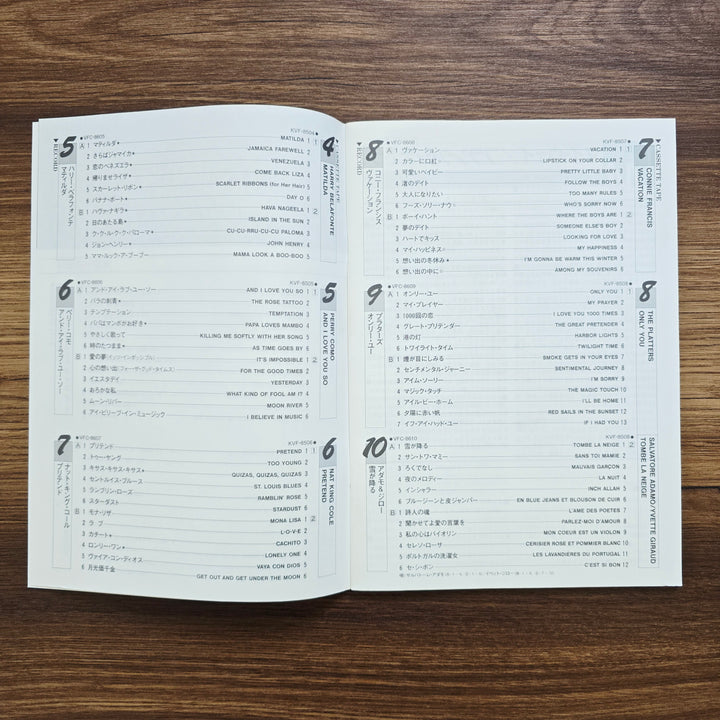 ▼RECORD
5
ハリー・ベラフォンテ
マティルダ
●VFC-8605
KVF-8504●
A 1 マティルダ★ MATILDA 1 1
2 さらばジャマイカ★ JAMAICA FAREWELL 2
3 恋のベネズエラ★ VENEZUELA 3
4 帰りませライザ★ COME BACK LIZA 4
5 スカーレット・リボン★ SCARLET RIBBONS (for Her Hair) 5
6 バナナ・ボート★ DAY O 6
B 1 ハヴァ・ナギラ★ HAVA NAGEELA 1 2
2 日のあたる島★ ISLAND IN THE SUN 2
3 ク・ク・ル・ク・ク・パローマ★ CU-CU-RRU-CU-CU PALOMA 3
4 ジョン・ヘンリー★ JOHN HENRY 4
5 ママ・ルック・ア・ブーブー MAMA LOOK A BOO-BOO 5
▼CASSETTE TAPE
4
HARRY BELAFONTE
MATILDA
6
ペリー・コモ
アンド・アイ・ラブ・ユー・ソー
●VFC-8606
KVF-8505●
A 1 アンド・アイ・ラブ・ユー・ソー AND I LOVE YOU SO 1 1
2 バラの刺青★ THE ROSE TATTOO 2
3 テンプテーション TEMPTATION 3
4 パパはマンボがお好き★ PAPA LOVES MAMBO 4
5 やさしく歌って KILLING ME SOFTLY WITH HER SONG 5
6 時のたつまま★ AS TIME GOES BY 6
B 1 愛の夢(イッツ・インポッシブル) IT'S IMPOSSIBLE 1 2
2 心の想い出(フォー・ザ・グッド・タイムス) FOR THE GOOD TIMES 2
3 イエスタデイ YESTERDAY 3
4 おろかな私 WHAT KIND OF FOOL AM I? 4
5 ムーン・リバー MOON RIVER 5
6 アイ・ビリーブ・イン・ミュージック I BELIEVE IN MUSIC 6
5
PERRY COMO
AND I LOVE YOU SO
7
ナット・キング・コール
プリテンド
●VFC-8607
KVF-8506●
A 1 プリテンド PRETEND 1 1
2 トゥー・ヤング TOO YOUNG 2
3 キサス・キサス・キサス★ QUIZAS, QUIZAS, QUIZAS 3
4 セントルイス・ブルース ST. LOUIS BLUES 4
5 ランブリン・ローズ RAMBLIN' ROSE 5
6 スターダスト STARDUST 6
B 1 モナ・リザ MONA LISA 1 2
2 ラブ L-O-V-E 2
3 カチート★ CACHITO 3
4 ロンリー・ワン★ LONELY ONE 4
5 ヴァイア・コン・ディオス VAYA CON DIOS 5
6 月光価千金 GET OUT AND GET UNDER THE MOON 6
6
NAT KING COLE
PRETEND
8
コニー・フランシス
ヴァケーション
●VFC-8608
KVF-8507●
A 1 ヴァケーション VACATION 1 1
2 カラーに口紅 LIPSTICK ON YOUR COLLAR 2
3 可愛いベイビー PRETTY LITTLE BABY 3
4 渚のデイト FOLLOW THE BOYS 4
5 大人になりたい TOO MANY RULES 5
6 フーズ・ソリー・ナウ WHO'S SORRY NOW 6
B 1 ボーイ・ハント WHERE THE BOYS ARE 1 2
2 夢のデイト SOMEONE ELSE'S BOY 2
3 ハートでキッス LOOKING FOR LOVE 3
4 マイ・ハッピネス MY HAPPINESS 4
5 想い出の冬休み★ I'M GONNA BE WARM THIS WINTER 5
6 想い出の中に AMONG MY SOUVENIRS 6
▼CASSETTE TAPE
7
CONNIE FRANCIS
VACATION
9
プラターズ
オンリー・ユー
●VFC-8609
KVF-8508●
A 1 オンリー・ユー ONLY YOU 1 1
2 マイ・プレイヤー MY PRAYER 2
3 1000回の恋 I LOVE YOU 1000 TIMES 3
4 グレート・プリテンダー THE GREAT PRETENDER 4
5 港の灯 HARBOR LIGHTS 5
6 トワイライト・タイム TWILIGHT TIME 6
B 1 煙が目にしみる SMOKE GETS IN YOUR EYES 7
2 センチメンタル・ジャーニー SENTIMENTAL JOURNEY 8
3 アイム・ソーリー I'M SORRY 9
4 マジック・タッチ THE MAGIC TOUCH 10
5 アイル・ビー・ホーム I'LL BE HOME 11
6 夕陽に赤い帆 RED SAILS IN THE SUNSET 12
7 イフ・アイ・ハッド・ユー IF I HAD YOU 13
8
THE PLATTERS
ONLY YOU
10
アダモ&ジロー
雪が降る
●VFC-8610
KVF-8509●
A 1 雪が降る TOMBE LA NEIGE 1 2
2 サン・トワ・マミー SANS TOI MAMIE 2
3 ろくでなし MAUVAIS GARÇON 3
4 夜のメロディー LA NUIT 4
5 インシャラー INCH ALLAH 5
6 ブルージーンと皮ジャンパー EN BLUE JEANS ET BLOUSON DE CUIR 6
B 1 詩人の魂 L'AME DES POETES 7
2 聞かせてよ愛の言葉を PARLEZ-MOI D'AMOUR 8
3 私の心はバイオリン MON COEUR EST UN VIOLON 9
4 セレソ・ローサ CERISIER ROSE ET POMMIER BLANC 10
5 ポルトガルの洗濯女 LES LAVANDIERES DU PORTUGAL 11
6 セ・シ・ボン C'EST SI BON 12
SALVATORE ADAMO/YVETTE GIRAUD
TOMBE LA NEIGE